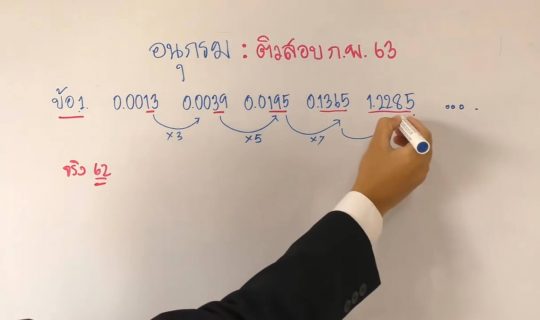 อนุกรม : ติวสอบ ก.พ. 63
ข้อ 1. 0.0013 0.0039 0.0195 0.1365 1.2285 ... .
×3 ×5 ×7
จริง 62